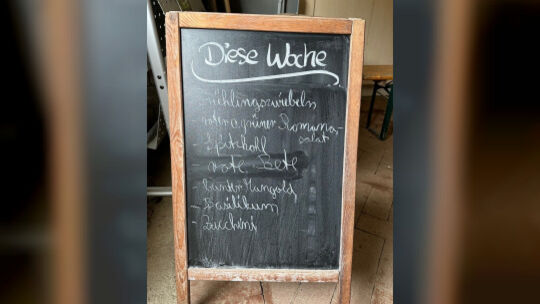 Diese Woche
- Frühlingszwiebeln
- roter & grüner Romana-
salat
- Spitzkohl
rote Bete
- bunter Mangold
- Basilikum
- Zucchini